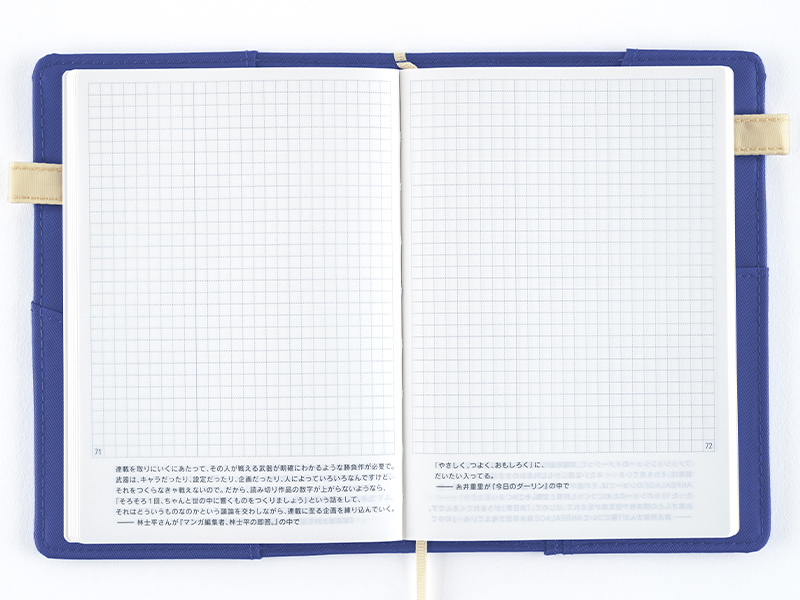 71
連載を取りにいくにあたって、その人が戦える武器が明確にわかるような勝負作が必要で。
武器は、キャラだったり、設定だったり、企画だったり、人によっていろいろなんですけど、
それをつくらなきゃ戦えないので。だから、読み切り作品の数字が上がらないようなら、
「そろそろ1回、ちゃんと世の中に響くものをつくりましょう」という話をして、
それはどういうものなのかという議論を交わしながら、連載に至る企画を練り込んでいく。
—— 林士平さんが『マンガ編集者、林士平の即答。』の中で
72
『やさしく、つよく、おもしろく』に、
だいたい入ってる。
—— 糸井重里が『今日のダーリン』の中で